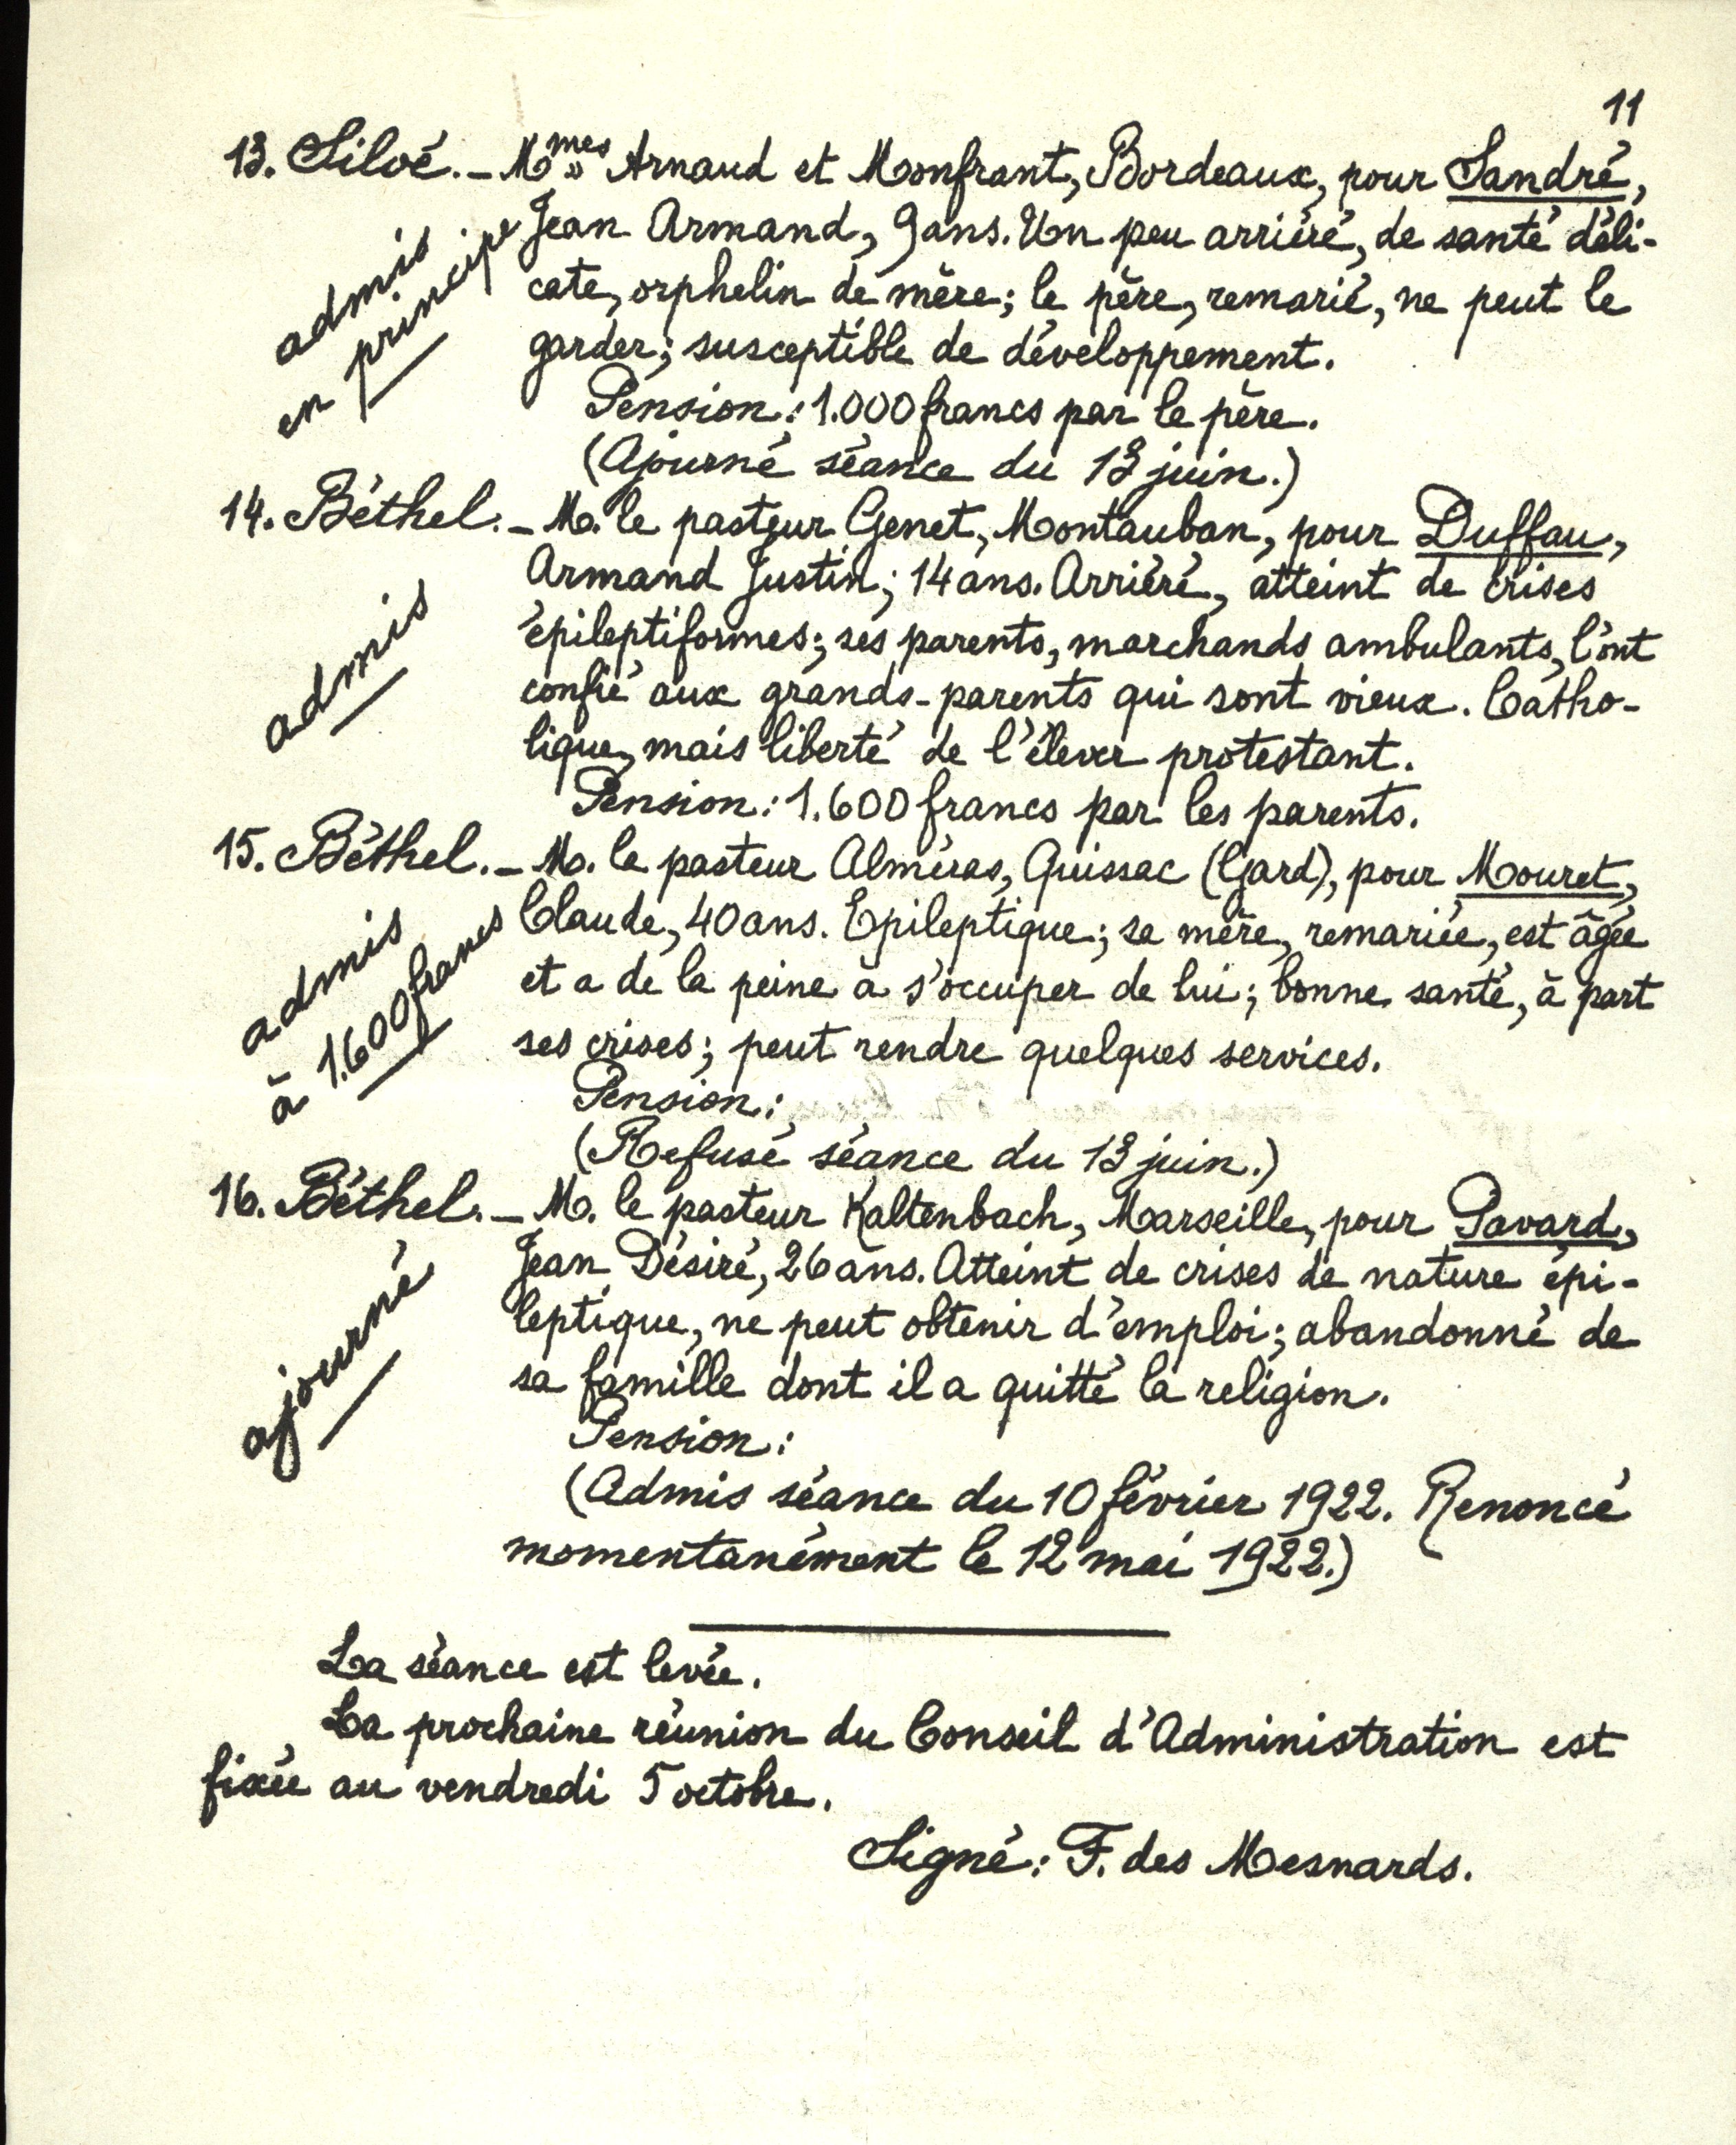 11
13. Siloé. - Mmes Arnaud et Monfrant, Bordeaux, pour Sandré,
Jean Armand, 9 ans. Un peu arriéré, de santé déli-
cate, orphelin de mère; le père, remarié, ne peut le
garder; susceptible de développement.
Pension: 1.000 francs par le père.
(Ajourné séance du 13 juin.)
admis
en principe
14. Béthel. - M. le pasteur Genet, Montauban, pour Duffau,
Armand Justin; 14 ans. Arriéré, atteint de crises
épileptiformes; ses parents, marchands ambulants, l'ont
confié aux grands-parents qui sont vieux. Catho-
lique, mais liberté de l'élever protestant.
Pension: 1.600 francs par les parents.
admis
15. Béthel. - M. le pasteur Alméras, Quissac (Gard), pour Mouret,
Claude, 40 ans. Epileptique; sa mère, remariée, est âgée
et a de la peine à s'occuper de lui; bonne santé, à part
ses crises; peut rendre quelques services.
Pension:
(Refusé séance du 13 juin.)
admis
à 1.600 francs
16. Béthel. - M. le pasteur Kaltenbach, Marseille, pour Pavard,
Jean Désiré, 26 ans. Atteint de crises de nature épi-
leptique, ne peut obtenir d'emploi; abandonné de
sa famille dont il a quitté la religion.
Pension:
(Admis séance du 10 février 1922. Renoncé
momentanément le 12 mai 1922.)
ajourné
La séance est levée.
La prochaine réunion du Conseil d'Administration est
fixée au vendredi 5 octobre.
Signé: F. des Mesnards.